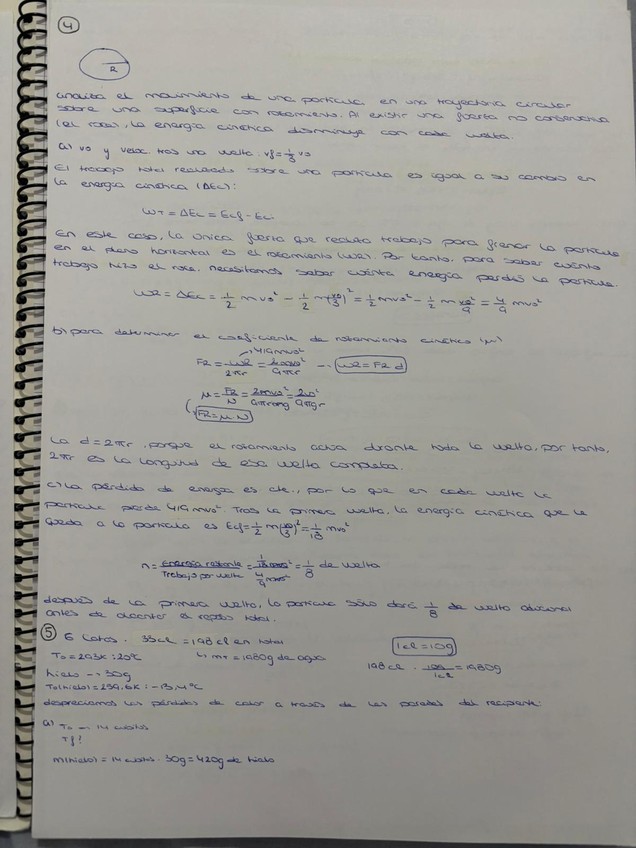 4
R
analiza el movimiento de una partícula en una trayectoria circular
sobre una superficie con rozamiento. Al existir una fuerza no conservativa
(el roce), la energía cinética disminuye con cada vuelta.
a) v0 y veloc. tras una vuelta. vf = 1/3 v0
El trabajo total realizado sobre una partícula es igual a su cambio en
la energía cinética (ΔEc):
WT = ΔEc = Ecf - Eci
En este caso, la única fuerza que realiza trabajo para frenar la partícula
en el plano horizontal es el rozamiento (WR). Por tanto, para saber cuánto
trabajo hizo el roce, necesitamos saber cuánta energía perdió la partícula.
WR = ΔEc = 1/2 mv0² - 1/2 m(v0/3)² = 1/2 mv0² - 1/2 m v0²/9 = 4/9 mv0²
b) para determinar el coeficiente de rozamiento cinético (μ)
→ 4/9 mv0²
FR = WR/2πr = 2mv0²/9πr → WR = FR · d
μ = FR/N = 2mv0²/9πrmg = 2v0²/9πgr
FR = μ · N
La d = 2πr, porque el rozamiento actúa durante toda la vuelta, por tanto,
2πr es la longitud de esa vuelta completa.
c) La pérdida de energía es cte., por lo que en cada vuelta la
partícula pierde 4/9 mv0². Tras la primera vuelta, la energía cinética que le
queda a la partícula es Ecf = 1/2 m(v0/3)² = 1/18 mv0²
n = Energía restante/Trabajo por vuelta = 1/18 mv0² / 4/9 mv0² = 1/8 de vuelta
después de la primera vuelta, la partícula sólo dará 1/8 de vuelta adicional
antes de alcanzar el reposo total.
5 6 latas · 33cl = 198cl en total 1cl = 10g
T0 = 293K = 20ºC ↳ mT = 1980g de agua 198cl · 10g/1cl = 1980g
hielo → 30g
T0(hielo) = 259,6K = -13,4ºC
despreciamos las pérdidas de calor a través de las paredes del recipiente.
a) T0 → 14
Tf?
m(hielo) = 14 · 30g = 420g de hielo